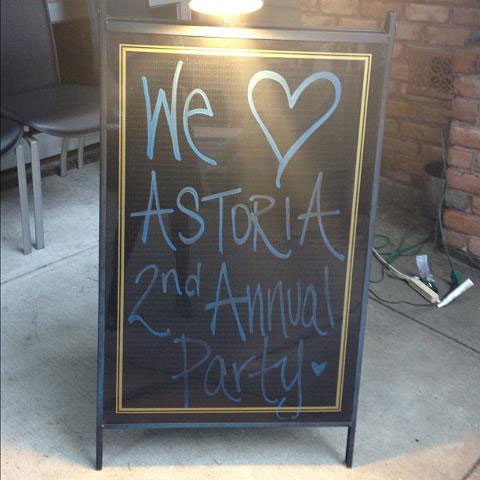 We ♥
ASTORIA
2nd Annual
Party ♥